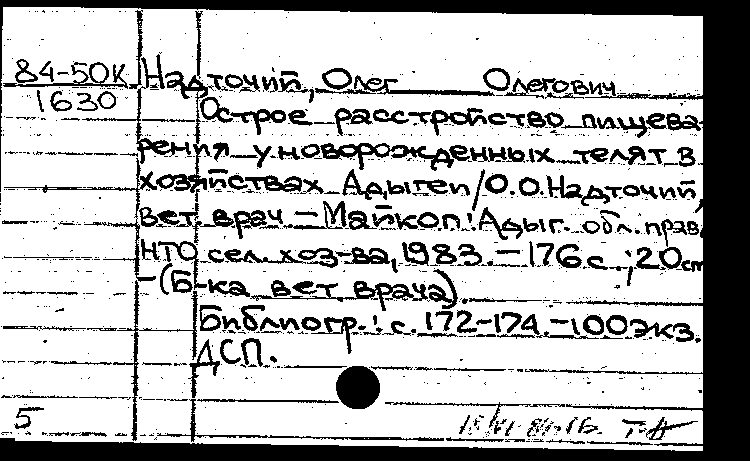 84-50К Надточий, Олег Олегович
1630
Острое расстройство пищева-
рения у новорожденных телят в
хозяйствах Адыгеи/О.О.Надточий,
вет. врач.-Майкоп:Адыг. обл. прав.
НТО сел. хоз-ва, 1983.-176 с.;20см
-(Б-ка вет врача).
Библиогр.: с. 172-174.-100экз.
ДСП.
5